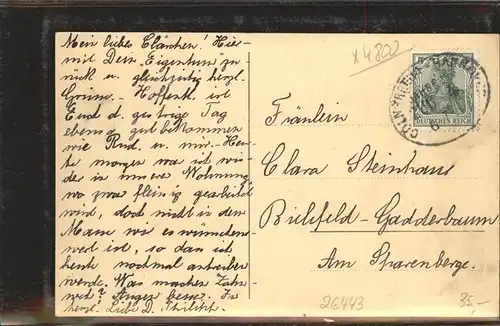 Mein liebes Clärchen! Hier-
mit Dein Eigentum zu-
rück u. gleichzeitig herzl.
Grüsse. Hoffentl. ist
Euch d. gestrige Tag
ebenso gut bekommen
wie Rud. u. mir. Heu-
te morgen war ich wie-
der in unsere Wohnung,
wo zwar fleissig gearbeitet
wird, doch nicht in dem
Masse wie es wünschens-
wert ist, so dass ich
heute nochmal antreiben
werde. Was machen Zahn-
weh? besser. In
herzl. Liebe D.
x4802
DEUTSCHES REICH
Fräulein
Clara Steinhaus
Bielefeld-Gadderbaum
Am Sparenberge.
26443
35,-